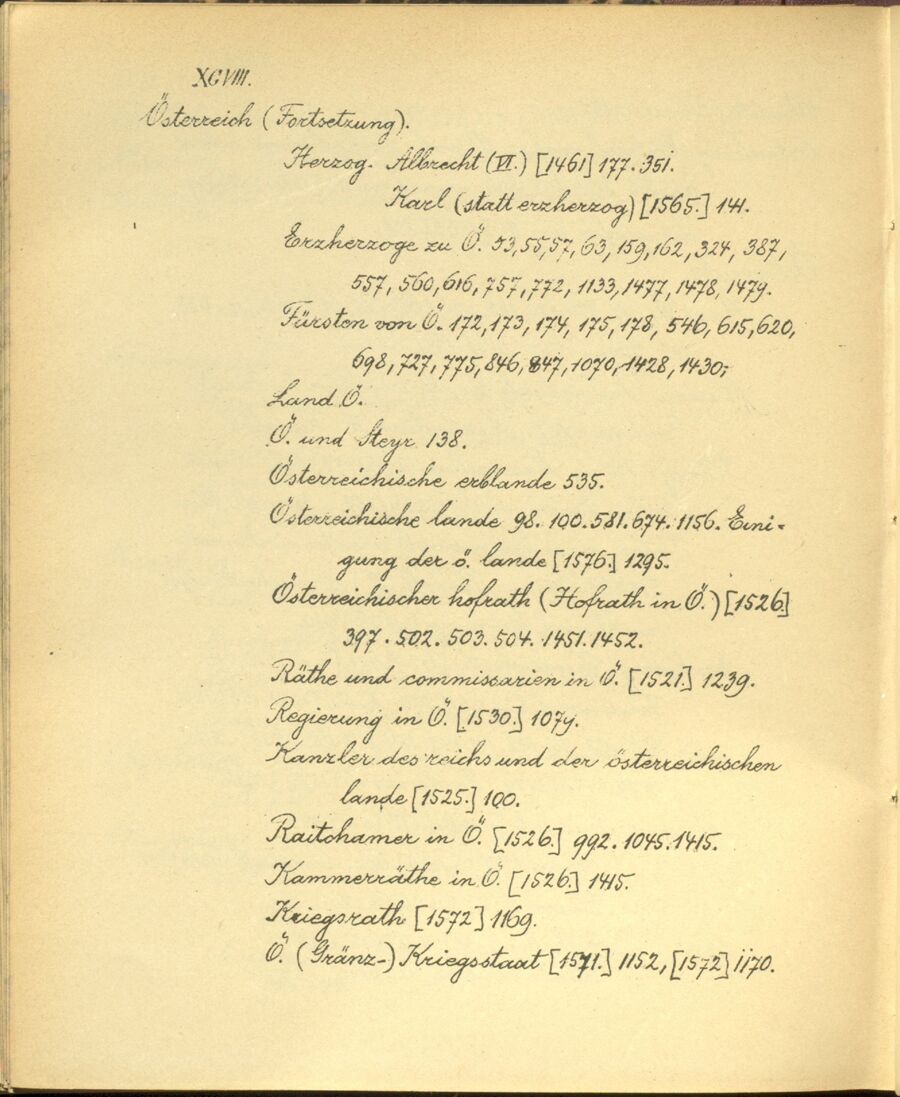 XCVIII.
Österreich (Fortsetzung).
Herzog. Albrecht (VI.) [1461] 177. 351.
Karl (statt erzherzog) [1565.] 141.
Erzherzoge zu Ö. 53, 55, 57, 63, 159, 162, 324, 387,
557, 560, 616, 757, 772, 1133, 1477, 1478, 1479.
Fürsten von Ö. 172, 173, 174, 175, 178, 546, 615, 620,
698, 727, 775, 846, 847, 1070, 1428, 1430;
Land Ö.
Ö. und Steyr 138.
Österreichische erblande 535.
Österreichische lande 98. 100. 581. 674. 1156. Eini-
gung der ö. lande [1576.] 1295.
Österreichischer hofrath (Hofrath in Ö.) [1526.]
397. 502. 503. 504. 1451. 1452.
Räthe und commissarien in Ö. [1521.] 1239.
Regierung in Ö. [1530.] 1079.
Kanzler des reichs und der österreichischen
lande [1525.] 100.
Raitchamer in Ö. [1526.] 992. 1045. 1415.
Kammerräthe in Ö. [1526.] 1415.
Kriegsrath [1572] 1169.
Ö. (Gränz-) Kriegsstaat [1571.] 1152, [1572] 1170.